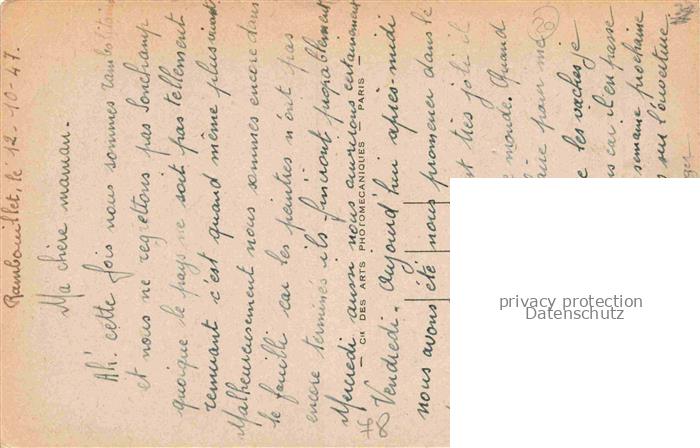 Rambouillet, le 12-10-47.
Ma chère maman.
Ah! cette fois nous sommes rambolitains
et nous ne regrettons pas Sonchamp
quoique le pays ne soit pas tellement
remuant c'est quand même plus vivant
Malheureusement nous sommes encore dans
le fouillis car les peintres n'ont pas
encore terminés ils finiront probablement
Mercredi aussi nous aurions certainement
CIE DES ARTS PHOTOMECANIQUES — PARIS —
Vendredi. Aujourd'hui après-midi
nous avons été nous promener dans le
très joli il
monde. Quand
pour me
les vaches je
car il en passe
semaine prochaine
sur l'ouverture
privacy protection
Datenschutz